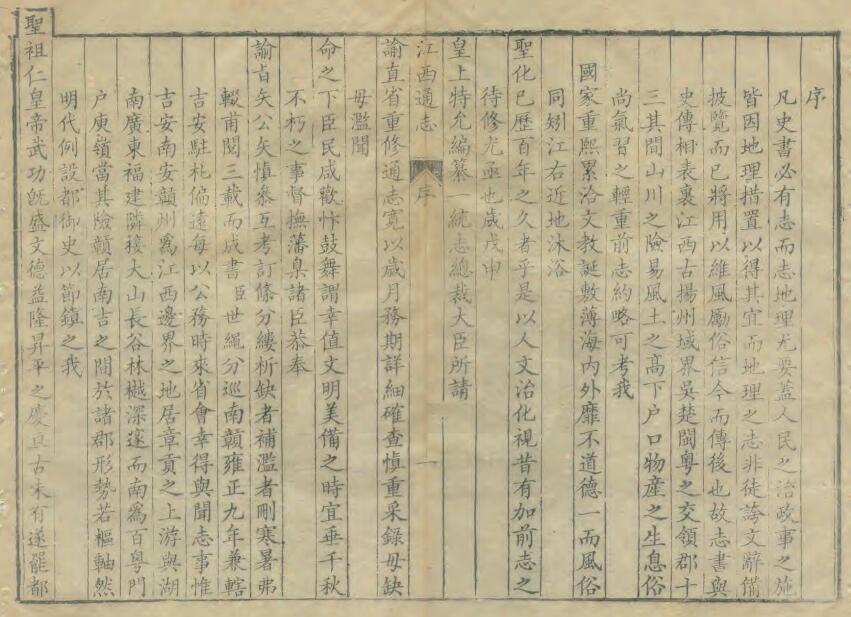 序
凡史書必有志而志地理尤要蓋人民之治政事之施
皆因地理措置以得其宜而地理之志非徒誇文辭備
披覽而已將用以維風勵俗信今而傳後也故志書與
史傳相表裏江西古揚州域界吳楚閩粵之交領郡十
三其間山川之險易風土之高下户口物產之生息俗
尚氣習之輕重前志約略可考我
國家重熙累洽文教誕敷薄海内外靡不道德一而風俗
同矧江右近地沐浴
聖化巳歷百年之久者乎是以人文治化視昔有加前志之
待修尤亟也歲戊申
皇上特允編纂一統志總裁大臣所請
江西通志
序
一
諭直省重修通志寬以歲月務期詳細確查慎重采錄毋缺
毋濫聞
命之下臣民咸歡忭鼓舞謂幸值文明美備之時宜垂千秋
不朽之事督撫藩臬諸臣恭奉
諭旨矢公矢慎叅互考訂條分縷析缺者補濫者刪寒暑弗
輟甫閱三載而成書臣世繩分巡南贛雍正九年兼轄
吉安駐札偏遠每以公務時來省會幸得與聞志事惟
吉安南安贛州爲江西邊界之地居章貢之上游與湖
南廣東福建隣接大山長谷林樾深邃而南爲百粵門
户庾嶺當其險贛居南吉之間於諸郡形勢若樞軸然
明代例設都御史以節鎮之我
聖祖仁皇帝武功旣盛文德益隆昇平之慶亘古未有遂罷都